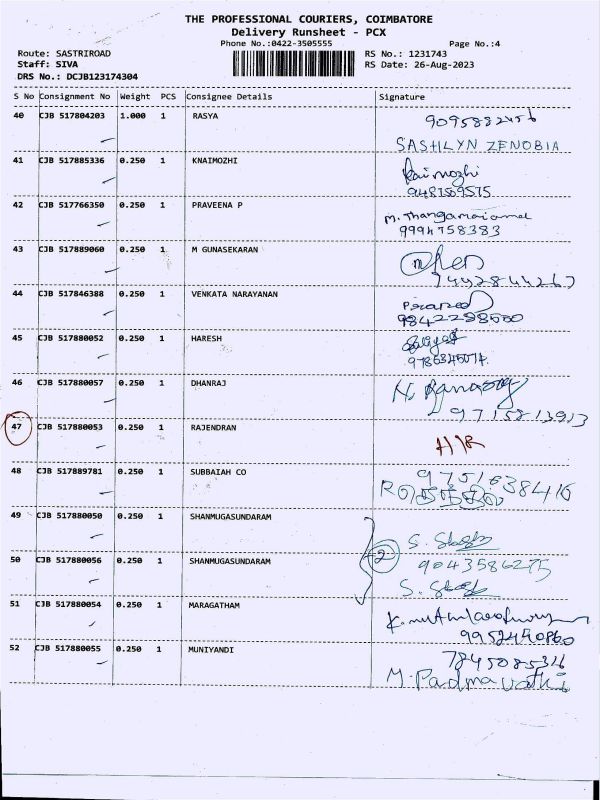 THE PROFESSIONAL COURIERS, COIMBATORE
Delivery Runsheet - PCX
Phone No.:0422-3505555 Page No.:4
Route: SASTRIROAD RS No.: 1231743
Staff: SIVA RS Date: 26-Aug-2023
DRS No.: DCJB123174304
S No Consignment No Weight PCS Consignee Details Signature
40 CJB 517804203 1.000 1 RASYA
SASHLYN ZENOBIA
41 CJB 517885336 0.250 1 KNAIMOZHI
Kaimozhi
42 CJB 517766350 0.250 1 PRAVEENA P
9994758383
43 CJB 517889060 0.250 1 M GUNASEKARAN
7442844267
44 CJB 517846388 0.250 1 VENKATA NARAYANAN
45 CJB 517880052 0.250 1 HARESH
46 CJB 517880057 0.250 1 DHANRAJ
9715813913
47 CJB 517880053 0.250 1 RAJENDRAN
48 CJB 517889781 0.250 1 SUBBAIAH CO
9751638416
49 CJB 517880050 0.250 1 SHANMUGASUNDARAM
2
50 CJB 517880056 0.250 1 SHANMUGASUNDARAM
9043586275
51 CJB 517880054 0.250 1 MARAGATHAM
9952440860
52 CJB 517880055 0.250 1 MUNIYANDI
M. Padmavathi